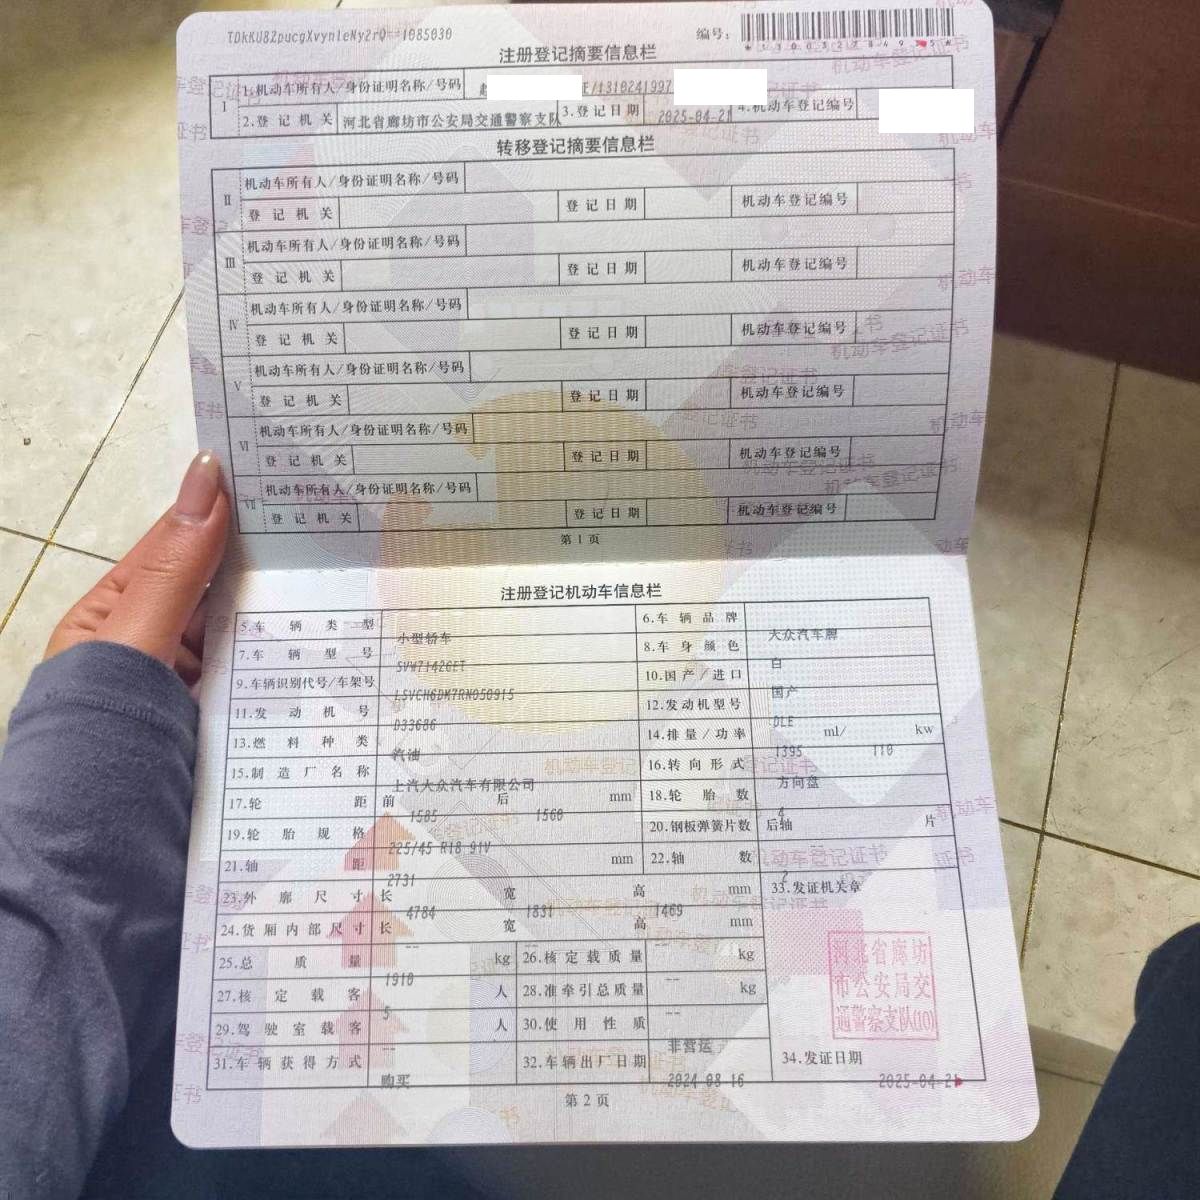 TDkKU82pucgXvynleNy2rQ==1085030
编号:
注册登记摘要信息栏
I 1.机动车所有人/身份证明名称/号码 131024199
2.登记机关 河北省廊坊市公安局交通警察支队 3.登记日期 2025-04-21 4.机动车登记编号
转移登记摘要信息栏
II 机动车所有人/身份证明名称/号码
登记机关 登记日期 机动车登记编号
III 机动车所有人/身份证明名称/号码
登记机关 登记日期 机动车登记编号
IV 机动车所有人/身份证明名称/号码
登记机关 登记日期 机动车登记编号
V 机动车所有人/身份证明名称/号码
登记机关 登记日期 机动车登记编号
VI 机动车所有人/身份证明名称/号码
登记机关 登记日期 机动车登记编号
VII 机动车所有人/身份证明名称/号码
登记机关 登记日期 机动车登记编号
第1页
注册登记机动车信息栏
5.车辆类型 小型轿车 6.车辆品牌 大众汽车牌
7.车辆型号 SVW7142GET 8.车身颜色 白
9.车辆识别代号/车架号 LSVCH6DM7RN050915 10.国产/进口 国产
11.发动机号 D33686 12.发动机型号 DLE
13.燃料种类 汽油 14.排量/功率 1395 ml/ 110 kw
15.制造厂名称 上汽大众汽车有限公司 16.转向形式 方向盘
17.轮距 前 1585 后 1560 mm 18.轮胎数 4
19.轮胎规格 225/45 R18 91V 20.钢板弹簧片数 后轴 片
21.轴距 2731 mm 22.轴数 2
23.外廓尺寸 长 4784 宽 1831 高 1469 mm 33.发证机关章
24.货厢内部尺寸 长 -- 宽 -- 高 -- mm
25.总质量 1910 kg 26.核定载质量 -- kg
27.核定载客 5 人 28.准牵引总质量 -- kg
29.驾驶室载客 -- 人 30.使用性质 非营运
31.车辆获得方式 购买 32.车辆出厂日期 2024-08-16 34.发证日期 2025-04-21
河北省廊坊
市公安局交
通警察支队(10)
第2页